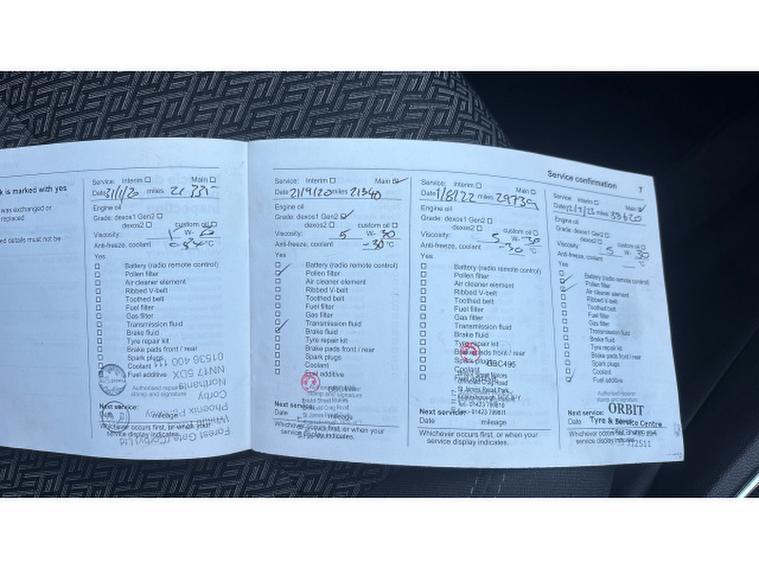 k is marked with yes
was exchanged or
replaced
ed details must not be
Service: Interim Main
Date 31/1/20 miles
Engine oil
Grade: dexos1 Gen2
dexos2 custom oil
Viscosity: W-
Anti-freeze, coolant °C
Yes
Battery (radio remote control)
Pollen filter
Air cleaner element
Ribbed V-belt
Toothed belt
Fuel filter
Gas filter
Transmission fluid
Brake fluid
Tyre repair kit
Brake pads front / rear
Spark plugs
Coolant
Fuel additive
Authorised repairer
stamp and signature
01536 400 111
NN17 5DX
Northants
Corby
Phoenix
Forest Gate (Corby) Ltd
Next service:
Date mileage
Whichever occurs first, or when your
service display indicates.
Service: Interim Main
Date 21/9/20 miles 21340
Engine oil
Grade: dexos1 Gen2
dexos2 custom oil
Viscosity: 5 W- 30
Anti-freeze, coolant -30 °C
Yes
Battery (radio remote control)
Pollen filter
Air cleaner element
Ribbed V-belt
Toothed belt
Fuel filter
Gas filter
Transmission fluid
Brake fluid
Tyre repair kit
Brake pads front / rear
Spark plugs
Coolant
Fuel additive
stamp and signature
Next service:
Date mileage
Whichever occurs first, or when your
service display indicates.
Service confirmation 7
Service: Interim Main
Date 1/8/22 miles 29739
Engine oil
Grade: dexos1 Gen2
dexos2 custom oil
Viscosity: 5 W- 30
Anti-freeze, coolant -30 °C
Yes
Battery (radio remote control)
Pollen filter
Air cleaner element
Ribbed V-belt
Toothed belt
Fuel filter
Gas filter
Transmission fluid
Brake fluid
Tyre repair kit
Brake pads front / rear
Spark plugs
GBC495
Coolant
Next service:
Date mileage
Whichever occurs first, or when your
service display indicates.
Service: Interim Main
Date 12/7/23 miles 38620
Engine oil
Grade: dexos1 Gen2
dexos2 custom oil
Viscosity: 5 W- 30
Anti-freeze, coolant °C
Yes
Battery (radio remote control)
Pollen filter
Air cleaner element
Ribbed V-belt
Toothed belt
Fuel filter
Gas filter
Transmission fluid
Brake fluid
Tyre repair kit
Brake pads front / rear
Spark plugs
Coolant
Fuel additive
Authorised repairer
stamp and signature
Next service: ORBIT
Date Tyre & Service Centre
service display indicates.